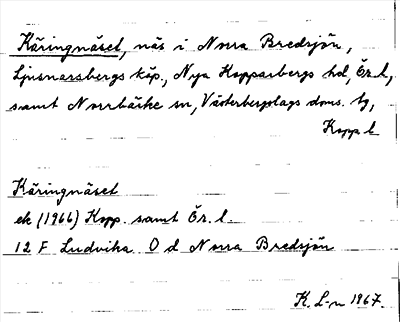 Käringnäset, näs i Norra Bredsjön,
Ljusnarsbergs köp., Nya Kopparbergs hd, Ör. l.,
samt Norrbärke sn, Västerbergslags doms. tg,
Kopp. l.
Käringnäset
ek (1966) Kopp. samt Ör. l.
12 F Ludvika O d Norra Bredsjön
K. L-n 1967.